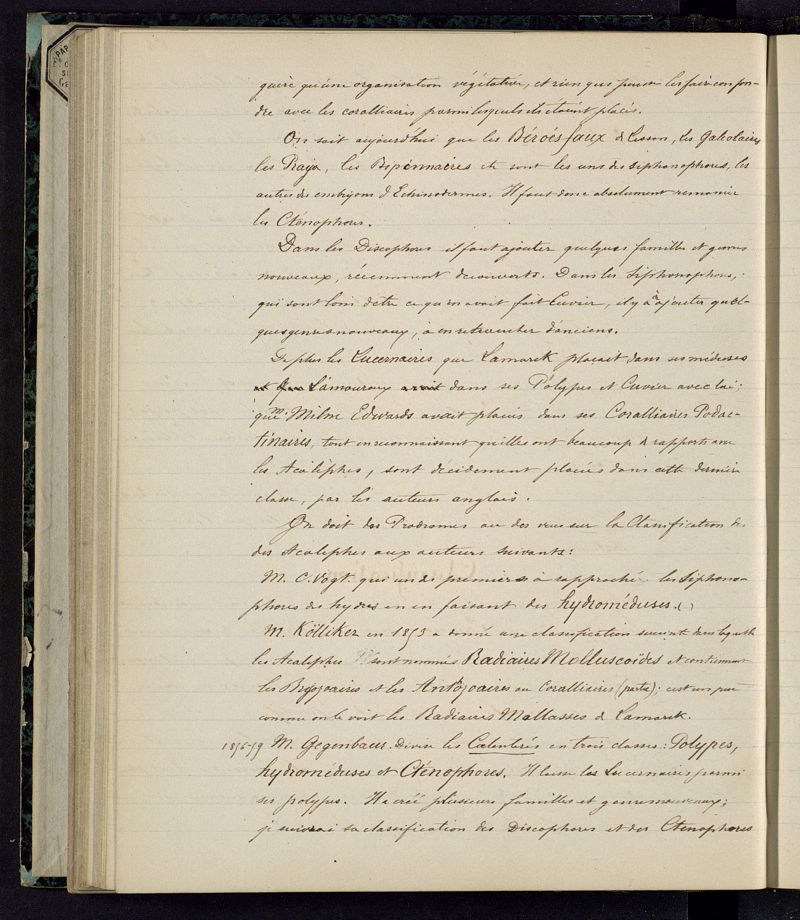 PAP
guère qu'une organisation végétative, et rien que puisse les faire confon-
dre avec les coralliaires parmi lesquels ils étaient placés.
On sait aujourd'hui que les Béroës faux de Lesson, les Galéolaires
les Praya, les Bipennaires etc sont les uns des siphonophores, les
autres des embryons d'Echinodermes. Il faut donc absolument remanier
les Cténophores.
Dans les Discophores il faut ajouter quelques familles et genres
nouveaux, récemment découverts. Dans les Siphonophores,
qui sont loin d'être ce qu'en avait fait Cuvier, il y a à ajouter quel-
ques genres nouveaux, à en retrancher d'anciens.
De plus les Lucernaires que Lamarck plaçait dans ses méduses
et que Lamouroux avait dans ses Polypes et Cuvier avec lui;
que M. Milne Edwards avait placés dans ses Coralliaires Podac-
tinaires, tout en reconnaissant qu'elles ont beaucoup de rapports avec
les Acalèphes, sont décidement placées dans cette dernière
classe, par les auteurs anglais.
On doit des Prodromes ou des vues sur la Classification des
des Acalephes aux auteurs suivants:
M. C. Vogt qui un des premiers a rapproché les Siphono-
phores des hydres en en faisant des hydroméduses. ( )
M. Kölliker en 1853 a donné une classification suivante dans laquelle
les Acalephes sont nommés Radiaires Molluscoïdes et contiennent
les Bryozoaires et les Antozoaires ou Coralliaires (partie); c'est un peu
comme on le voit les Radiaires Mollasses de Lamarck.
1856-59 M. Gegenbaur. Divise les Calentérés en trois classes: Polypes,
hydroméduses et Cténophores. Il laisse les Lucernaires parmi
ses polypes. Il a créé plusieurs familles et genres nouveaux;
je suivrai sa classification des Discophores et des Ctenophores